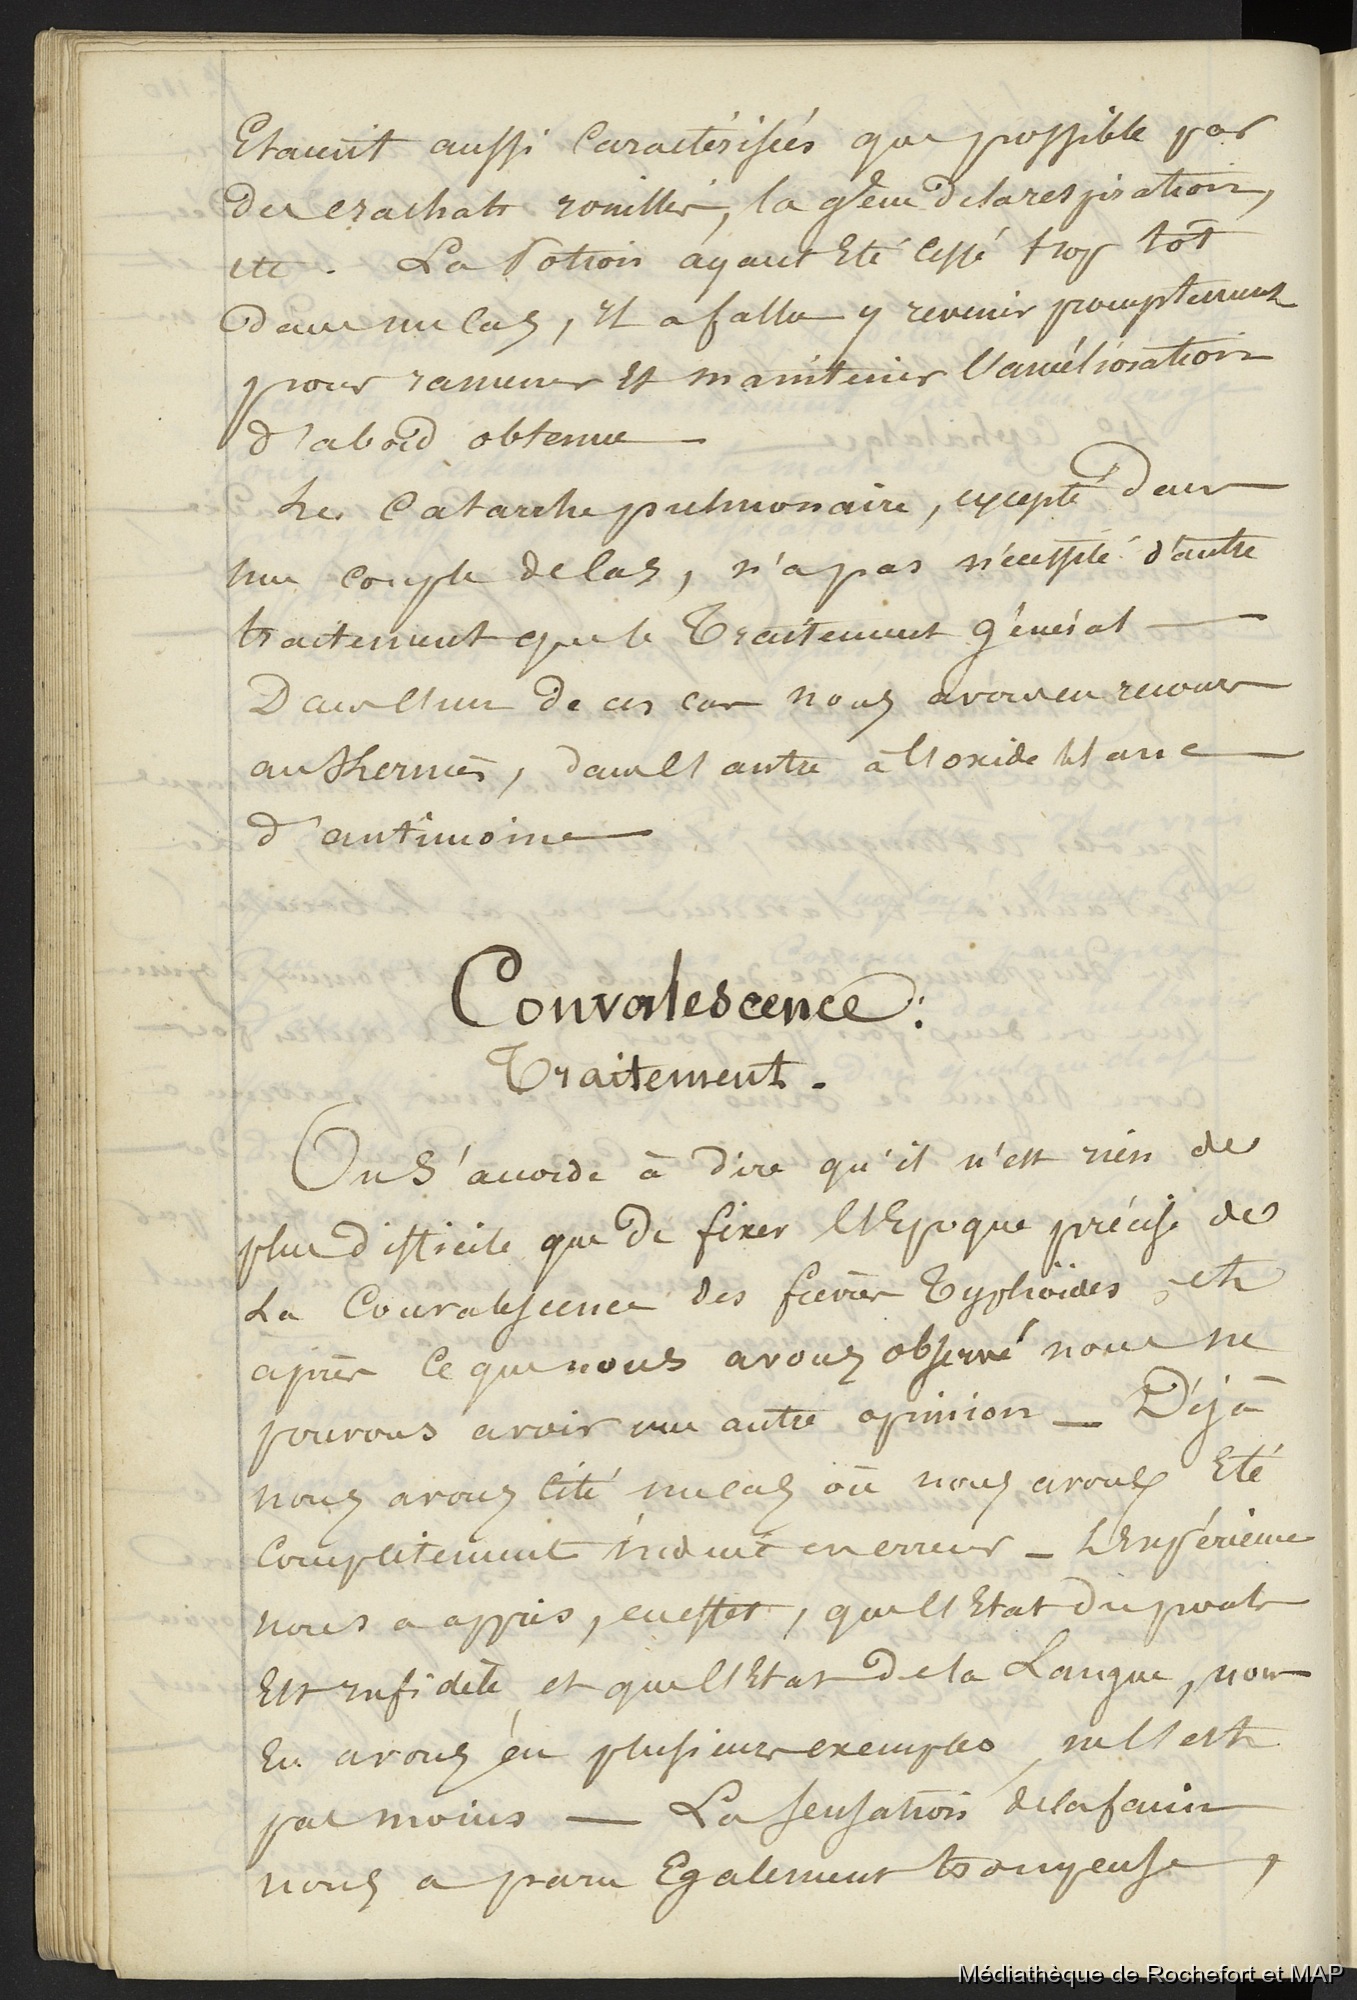 Etaient aussi Caractérisées que possible par
des crachats rouillés, la gêne De la respiration,
etc. La Potion ayant Eté Cessé trop tôt
Dans un Cas, Il a fallu y revenir promptement
pour ramener Et maintenir l'amélioration
d'abord obtenue —
Le Catarrhe pulmonaire, excepté Dans
une couple de Cas, n'a pas nécessité d'autre
traitement que le Traitement Général —
Dans l'un De ces cas nous avons eu recours
au Kermès, dans l'autre à l'oxide blanc
d'antimoine —
Convalescence :
Traitement.
On s'accorde à dire qu'il n'est rien de
plus difficile que De fixer l'Epoque précise de
La Convalescence des fièvres Typhoïdes, et
après Ce que nous avons observé nous ne
pouvons avoir une autre opinion — Déjà
nous avons Cité un cas où nous avons Eté
Complètement induit en erreur — L'Expérience
nous a appris, en effet, que l'Etat Du pouls
Est infidèle, et que l'Etat De la Langue, nous
En avons eu plusieurs exemples, ne l'est
pas moins — La sensation de la faim
nous a paru Egalement trompeuse,
Médiathèque de Rochefort et MAP